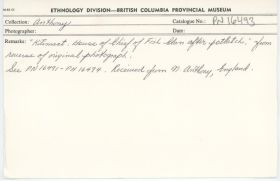 ETHNOLOGY DIVISION—BRITISH COLUMBIA PROVINCIAL MUSEUM
Collection: Anthony Catalogue No.: PN 16493
Photographer:
Remarks: "Kitimaat. House of Chief of Fish Clan after potlatch." from
reverse of original photograph.
See PN 16491-PN 16494. Received from N Anthony, England.